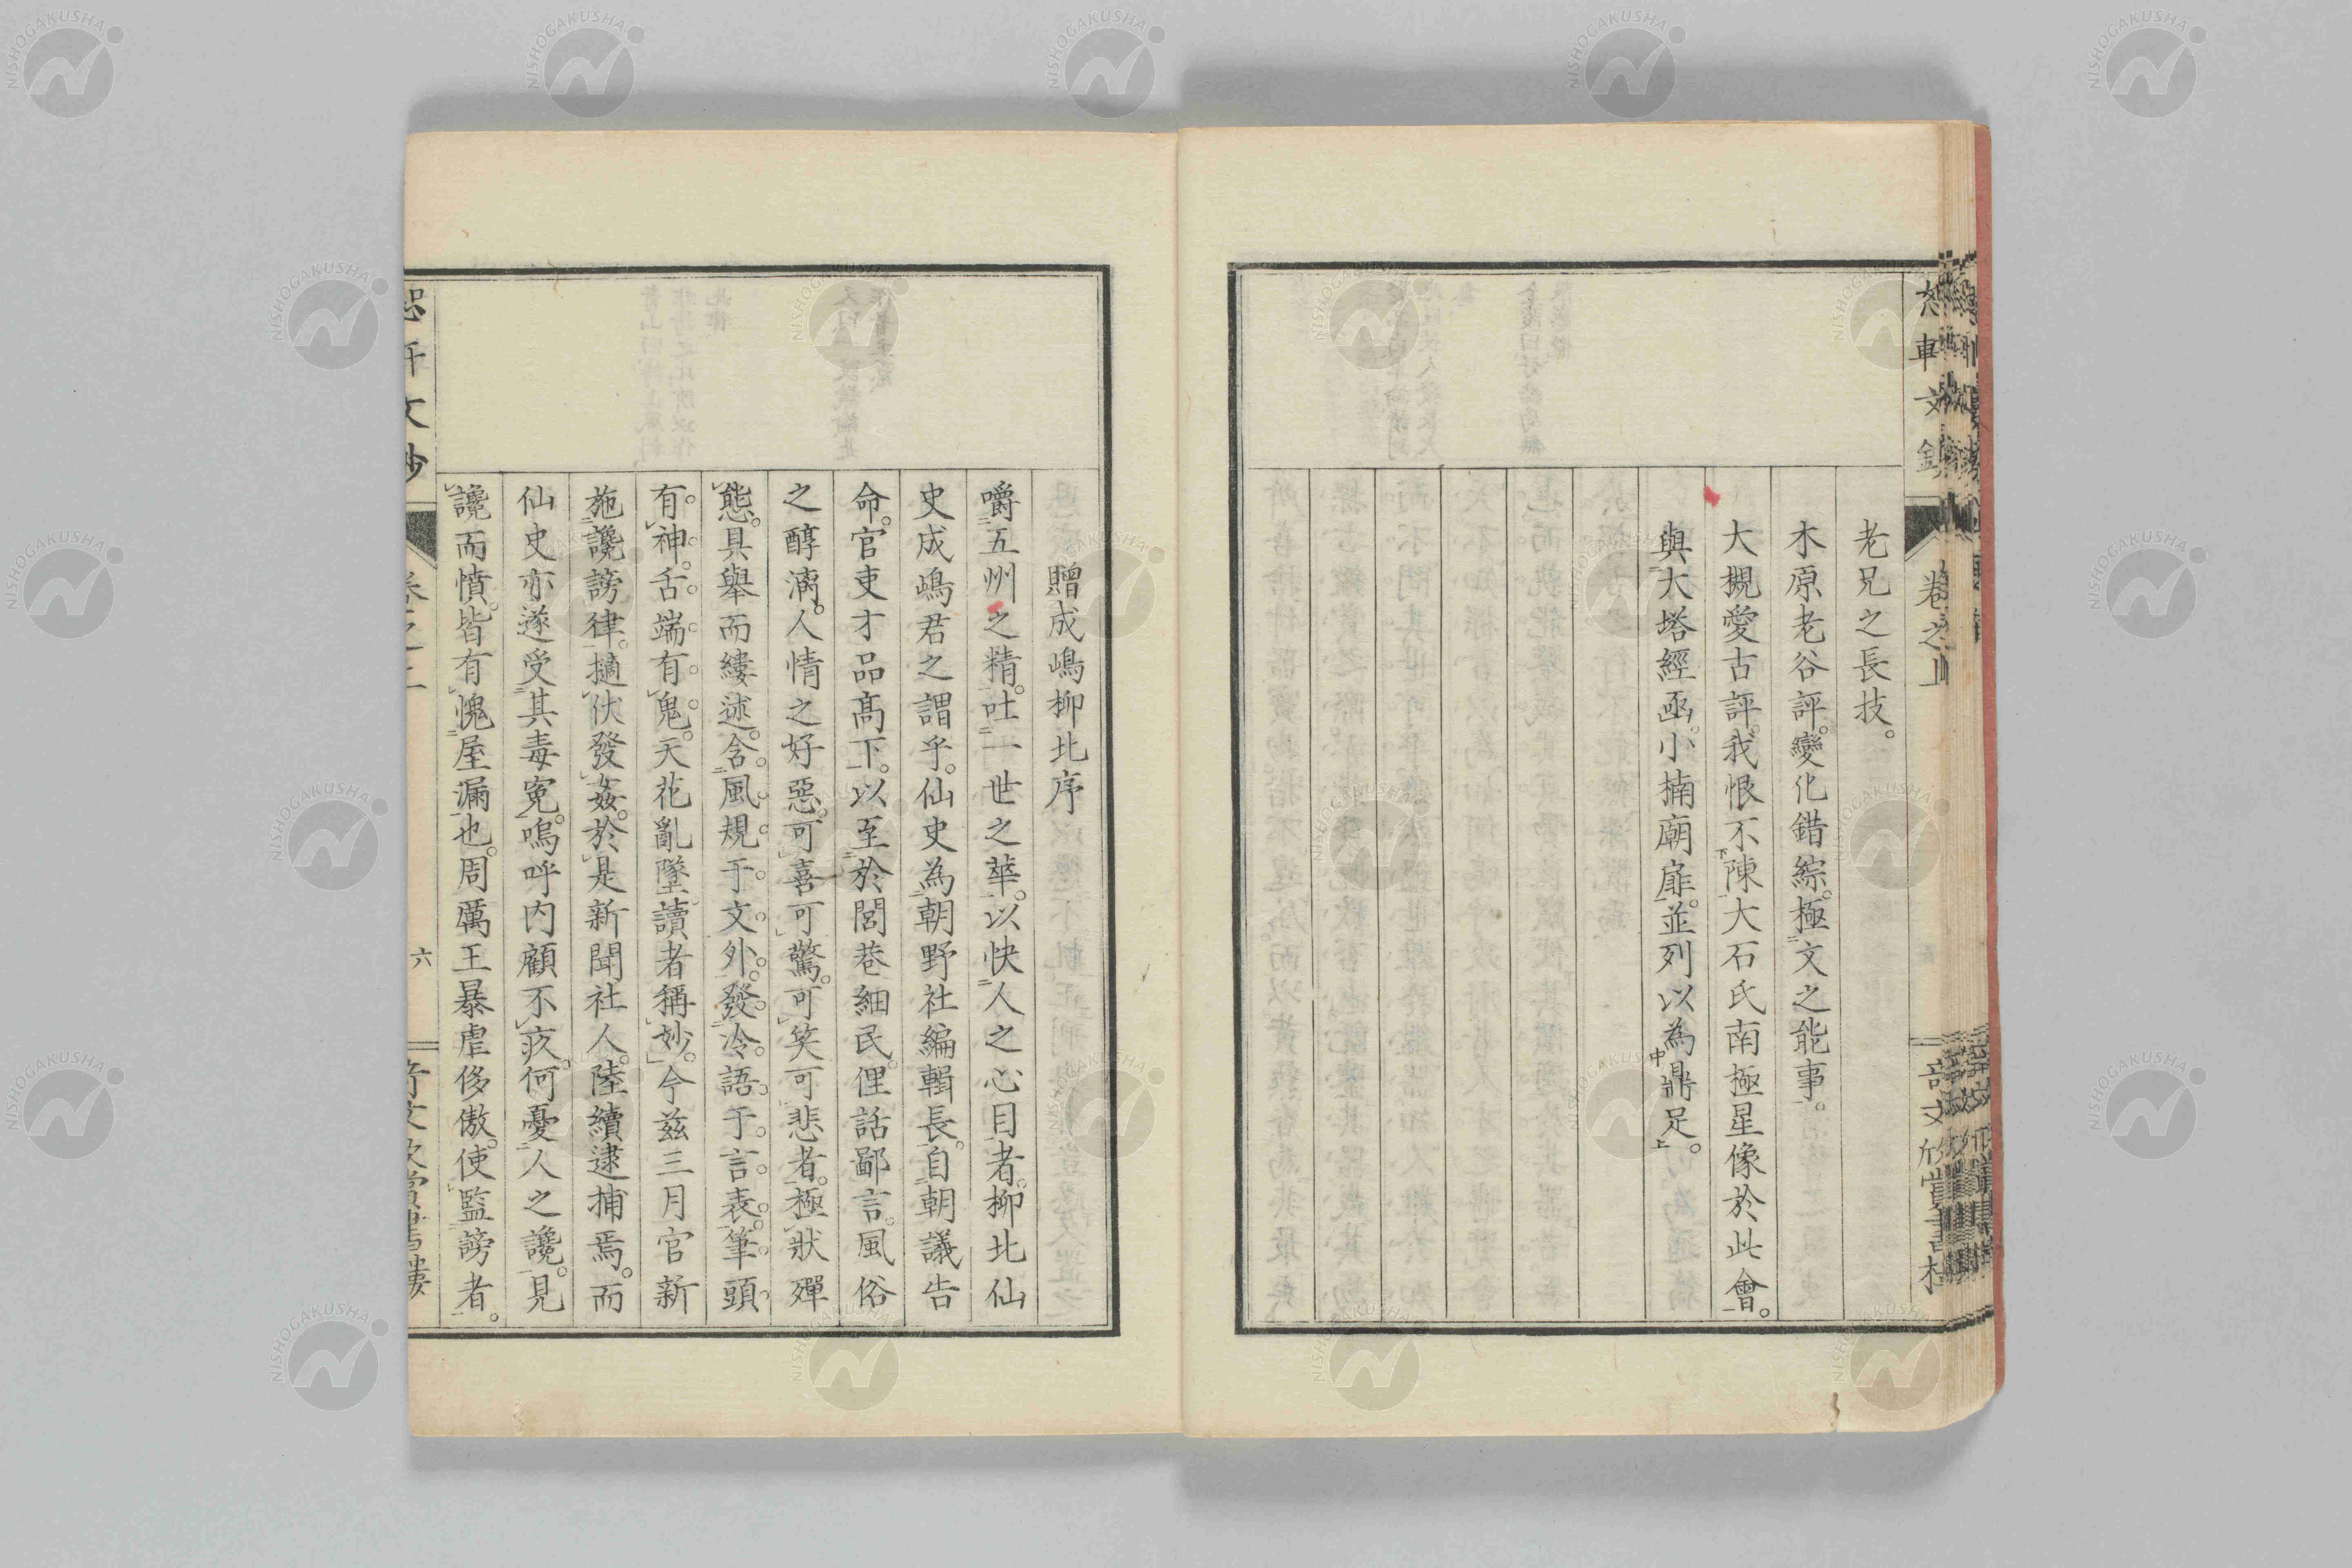 老兄之長技。
木原老谷評。變化錯綜。極文之能事。
大槻愛古評。我恨不陳大石氏南極星像於此會。
與大塔經函。小楠廟扉。並列以為鼎足。
卷之上
贈成嶋柳北序
嚼五州之精。吐一世之華。以快人之心目者。柳北仙
史成嶋君之謂乎。仙史為朝野社編輯長。自朝議告
命。官吏才品高下。以至於閭巷細民。俚話鄙言。風俗
之醇漓。人情之好惡。可喜可驚。可笑可悲者。極狀殫
態。具舉而縷述。含風規于文外。發冷語于言表。筆頭
有神。舌端有鬼。天花亂墜。讀者稱妙。今茲三月官新
施讒謗律。擿伏發姦。於是新聞社人。陸續逮捕焉。而
仙史亦遂受其毒寃。嗚呼內顧不疚。何憂人之讒。見
讒而憤。皆有愧屋漏也。周厲王暴虐侈傲。使監謗者。
六
NISHOGAKUSHA